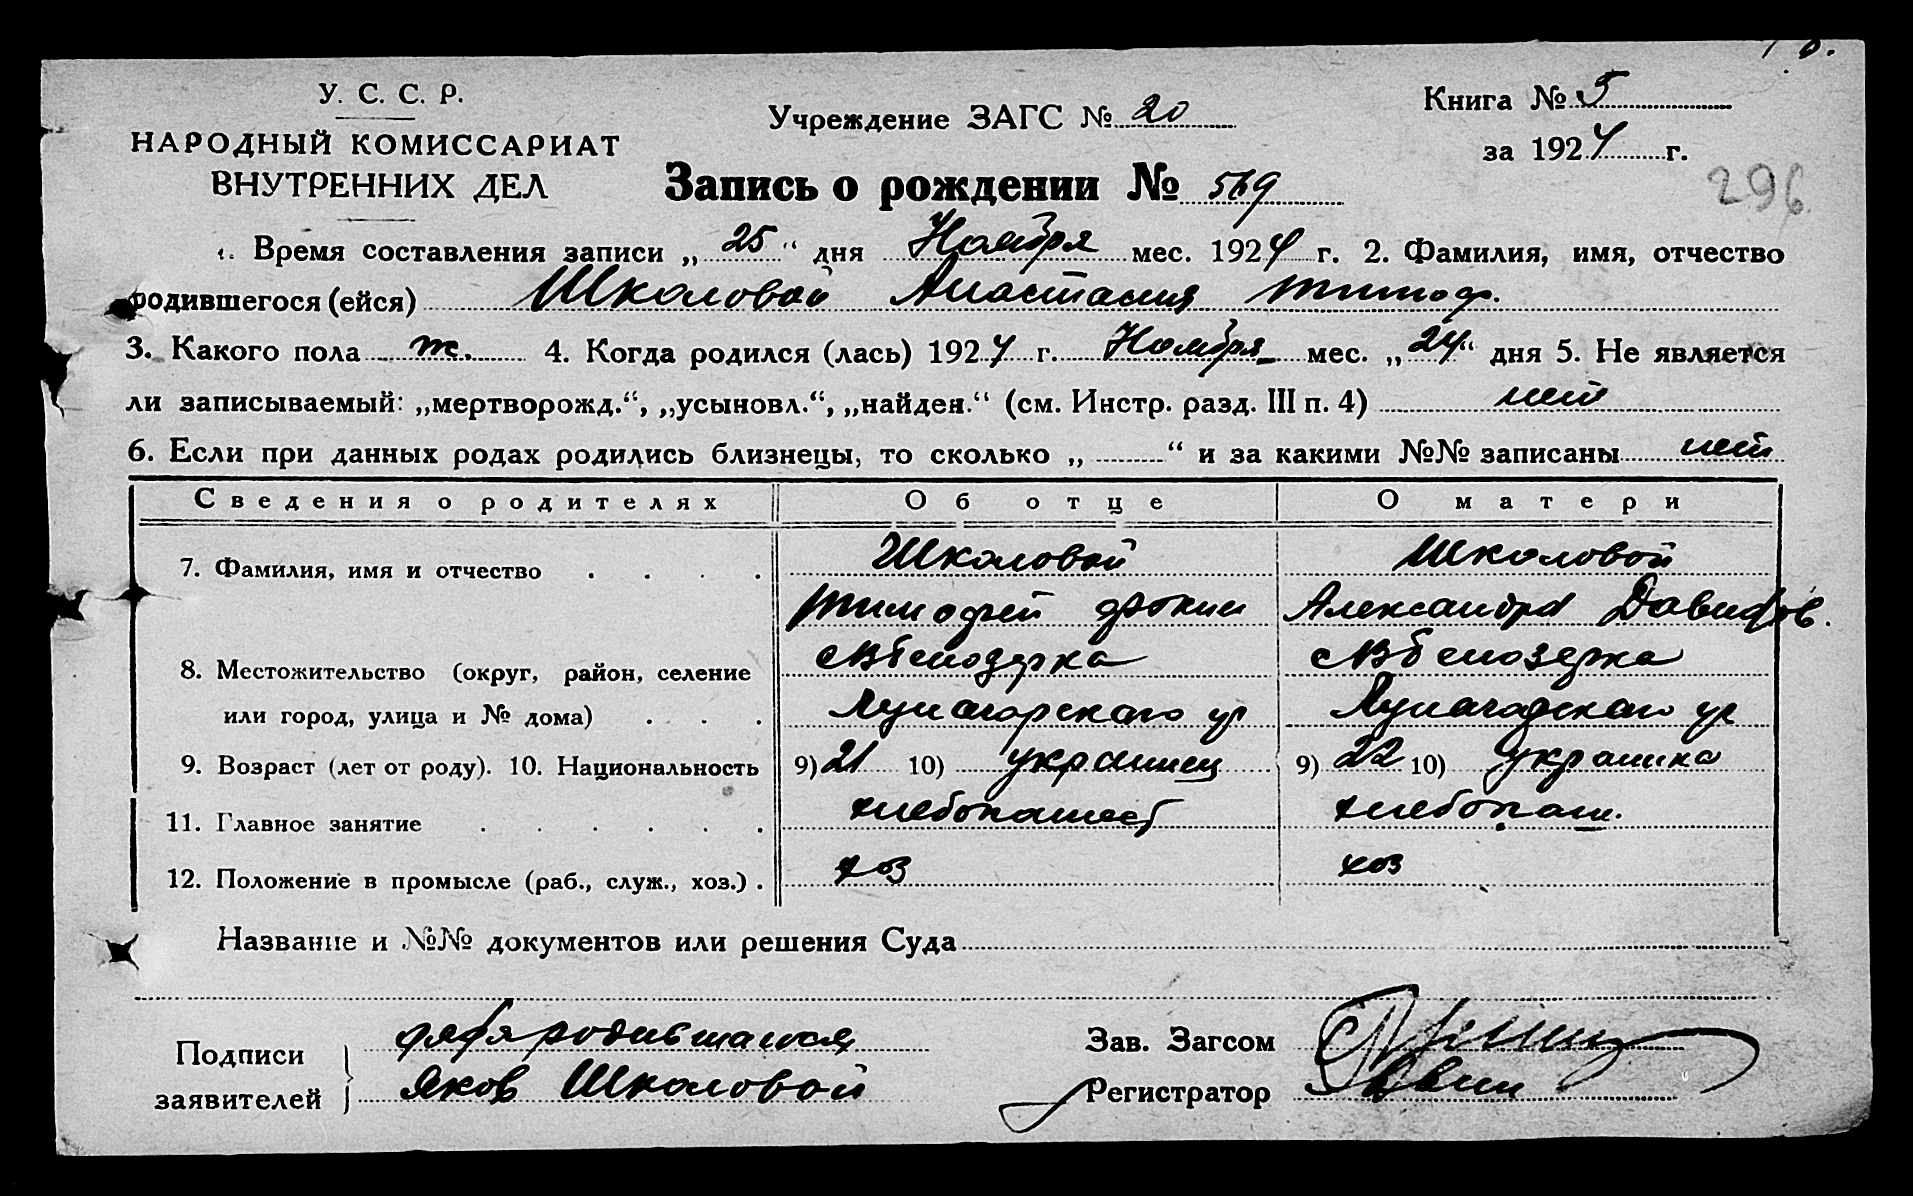 У. С. С. Р.
НАРОДНЫЙ КОМИССАРИАТ
ВНУТРЕННИХ ДЕЛ
Учреждение ЗАГС № 20
Книга № 5
за 1924 г.
Запись о рождении № 569
296
1. Время составления записи „25“ дня Ноября мес. 1924 г. 2. Фамилия, имя, отчество
родившегося (ейся) Школовой Анастасия Тимоф.
3. Какого пола ж. 4. Когда родился (лась) 1924 г. Ноября мес. „24“ дня 5. Не является
ли записываемый: „мертворожд.“, „усыновл.“, „найден.“ (см. Инстр. разд. III п. 4) нет
6. Если при данных родах родились близнецы, то сколько „ “ и за какими №№ записаны нет
Сведения о родителях Об отце О матери
7. Фамилия, имя и отчество . . . . Школовой Школовой
Тимофей Фокин Александра Давидов.
8. Местожительство (округ, район, селение Белозерка Белозерка
или город, улица и № дома) . . .
9. Возраст (лет от роду). 10. Национальность 9) 21 10) украинец 9) 22 10) украинка
11. Главное занятие . . . . . . хлебопашест хлебопаш.
12. Положение в промысле (раб., служ., хоз.) . хоз хоз
Название и №№ документов или решения Суда
Подписи заявителей
дядя родившагося
Яков Школовой
Зав. Загсом
Регистратор